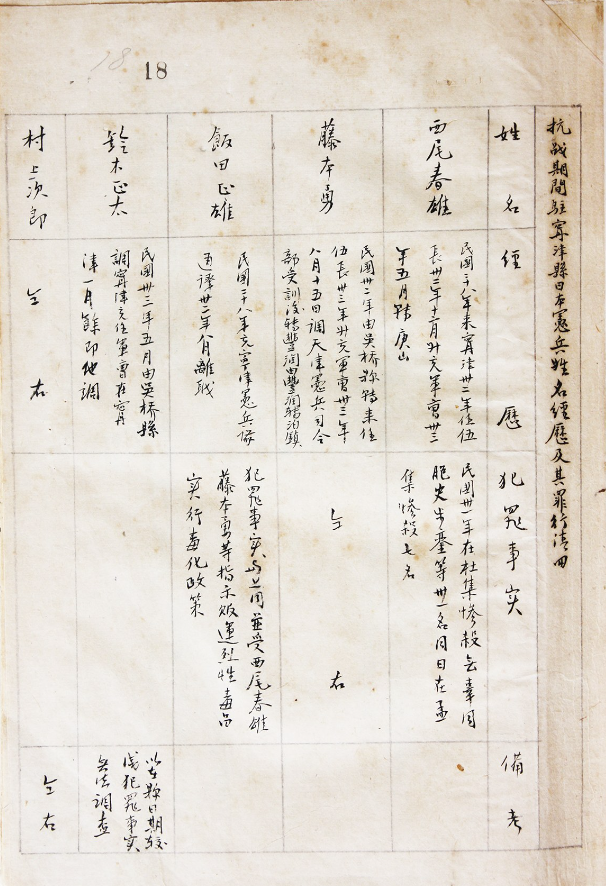 18
18
抗战期間駐寧津縣日本憲兵姓名經歷及其罪行清冊
姓名
經歷
犯罪事实
備考
西尾春雄
民國二八年來寧津卅二年任伍
長卅二年十二月升充軍曹卅三
年五月轉唐山
民國卅一年在杜集慘殺無辜同
胞史步鑾等卅一名同日在孟
集慘殺七名
藤本勇
民國卅二年由吳橋縣轉來任
伍長卅三年升充軍曹卅三年
八月十五日調天津憲兵司令
部受訓後轉豐潤由豐潤轉泊鎮
仝右
飯田正雄
民國二八年充寧津憲兵隊
通譯卅二年八月離職
犯罪事実与上同並受西尾春雄
藤本勇等指示贩運烈性毒品
实行毒化政策
鈴木正太
民國卅三年五月由吳桥縣
調寧津充任軍曹在寧
津一月餘即他調
以在縣日期較
浅犯罪事実
無法調查
村上次郎
仝右
仝右